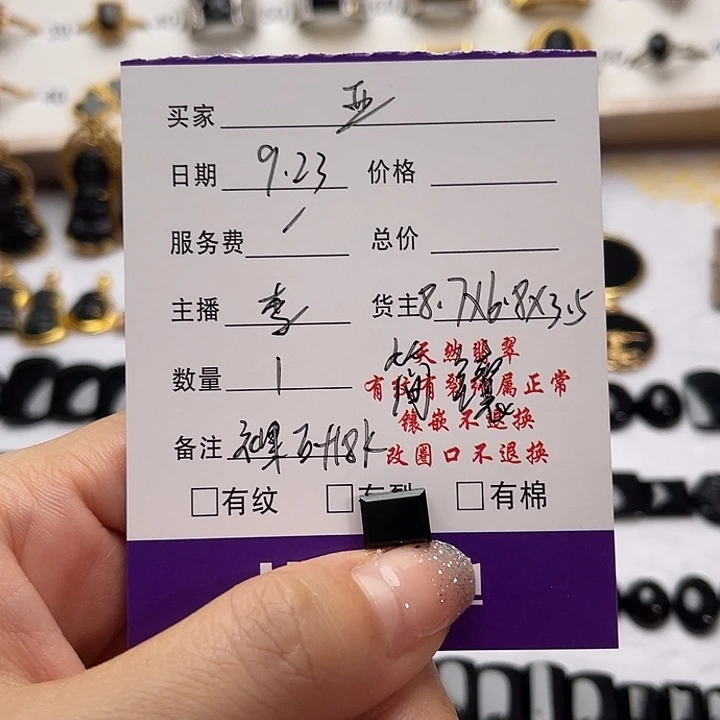 买家 亚
日期 9.23 价格
服务费 / 总价
主播 李 货主 8.7X6.8X3.5
数量 1 天然翡翠
有纹有裂 属正常
镶嵌不退换
备注 18K 改圈口不退换
□有纹 □有裂 □有棉